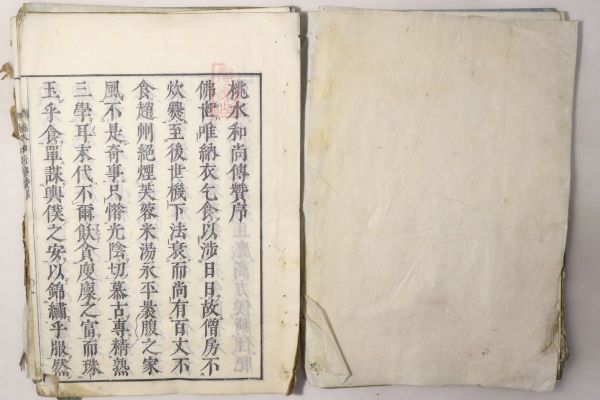 桃水和尚傳贊序
佛世唯納衣乞食以涉日日故僧房不
炊爨至後世機下法衰而尚有百丈不
食趙州絕煙芙蓉米湯永平裹腹之家
風不是奇事只惜光陰切慕古專精熟
三學耳末代不爾飲食廋廩之富而珠
玉乎食單誅輿僕之安以錦繡乎服然